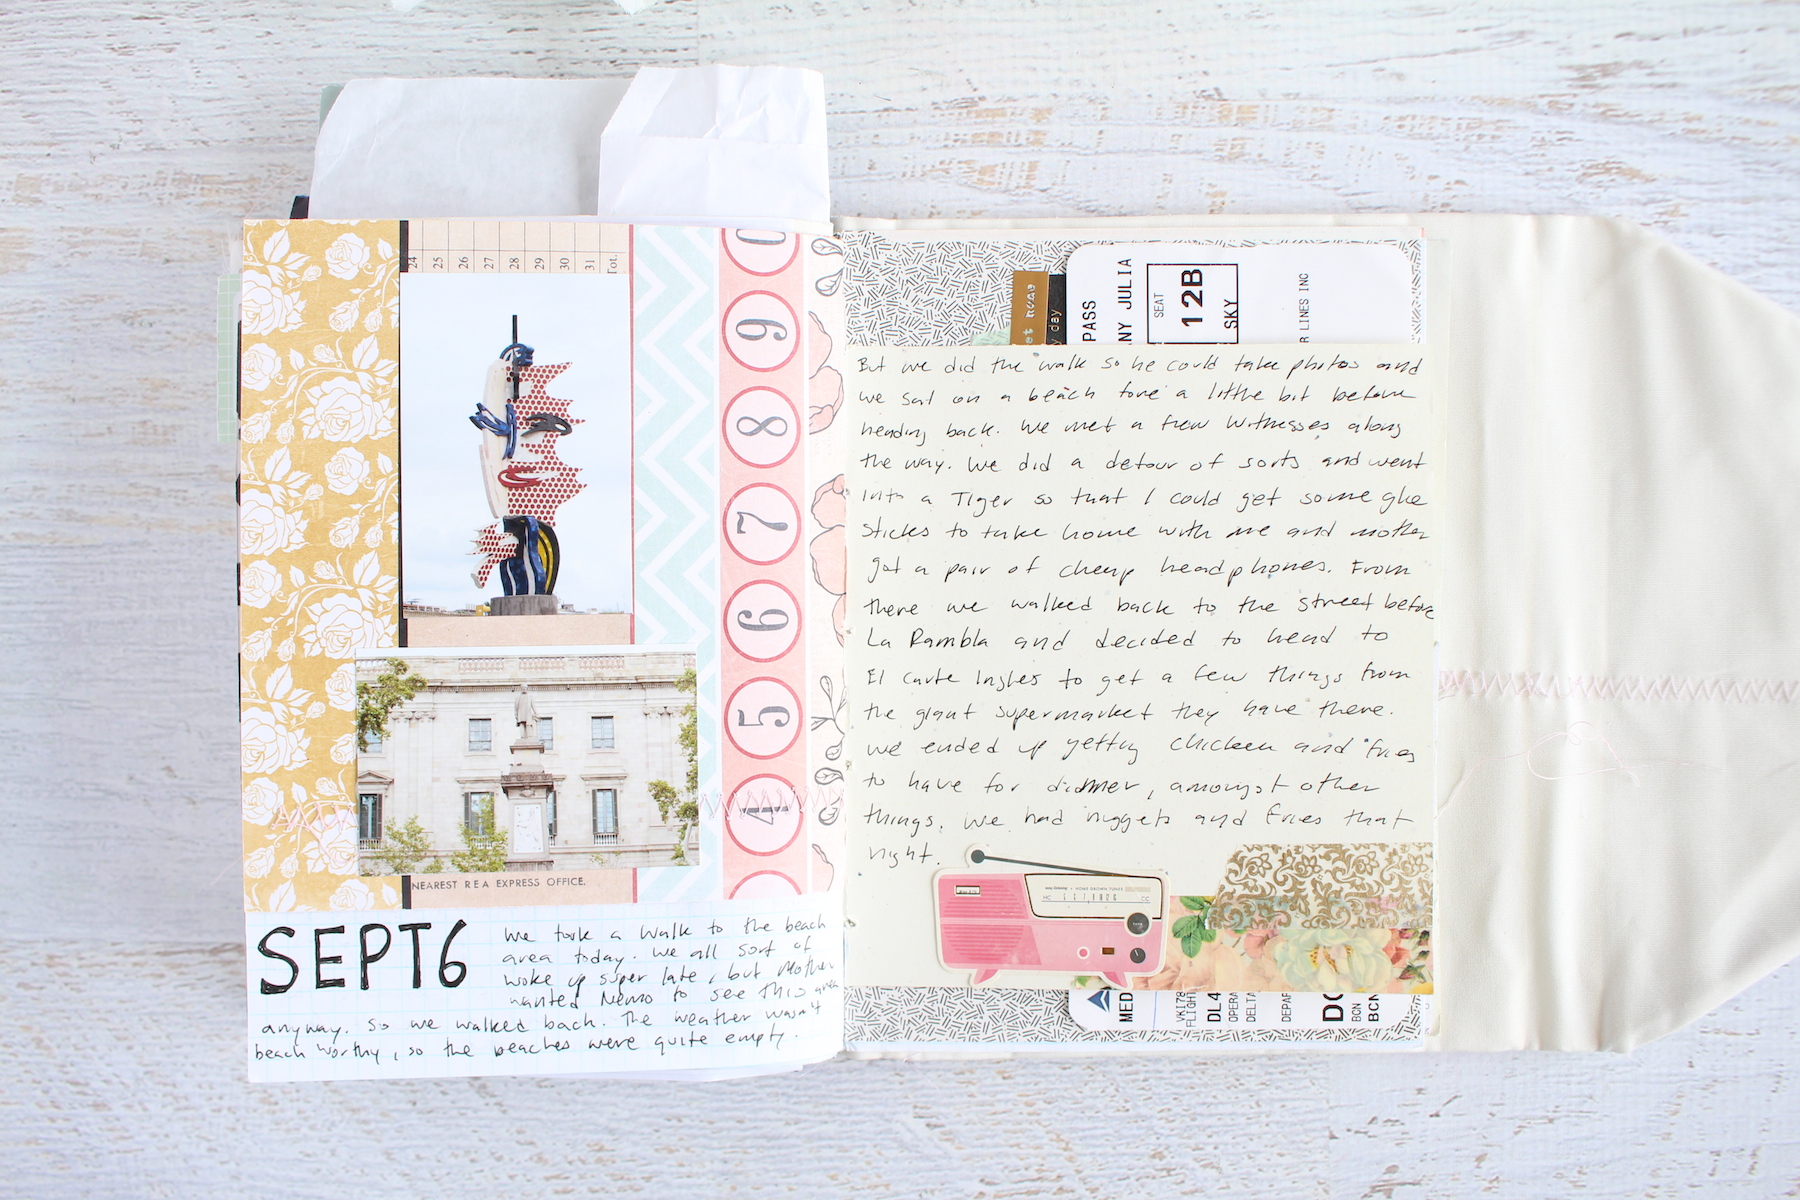 24 25 26 27 28 29 30 31 Tot.
0
9
8
7
6
5
4
NEAREST R E A EXPRESS OFFICE.
SEPT 6
We took a walk to the beach
area today. We all sort of
woke up super late, but mother
wanted Nemo to see this area
anyway. So we walked back. The weather wasn't
beach worthy, so the beaches were quite empty.
PASS
NY JULIA
SEAT
12B
SKY
R LINES INC
day
But we did the walk so he could take photos and
we sat on a beach fore a little bit before
heading back. We met a few Witnesses along
the way. We did a detour of sorts and went
into a Tiger so that I could get some glue
sticks to take home with me and mother
got a pair of cheap headphones. From
there we walked back to the street before
La Rambla and decided to head to
El Corte Ingles to get a few things from
the giant supermarket they have there.
We ended up getting chicken and fries
to have for dinner, amongst other
things. We had nuggets and fries that
night.
HOME GROWN TUNES
MED
VKI78
FLIGHT
DL4
OPERA
DELTA
DEPAR
BCN
BCN